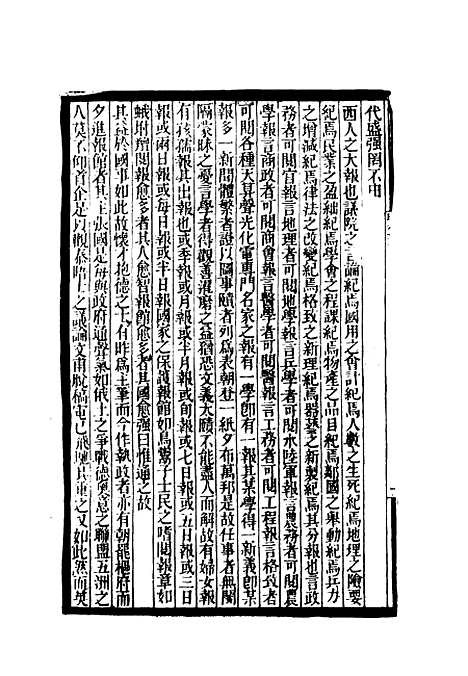 代盛强罔不由
西人之大報也議院之言論紀焉國用之會計紀焉人數之生死紀焉地理之險要
紀焉民業之盈絀紀焉學會之程課紀焉物產之品目紀焉鄰國之舉動紀焉兵力
之增減紀焉律法之改變紀焉格致之新理紀焉器藝之新製紀焉其分報也言政
務者可閱官報言地理者可閱地學報言兵學者可閱水陸軍報言農務者可閱農
學報言商政者可閱商會報言醫學者可閱醫報言工務者可閱工程報言格致者
可閱各種天算聲光化電專門名家之報有一學卽有一報其某學得一新義卽某
報多一新聞體繁者證以圖事賾者列爲表朝登一紙夕布萬邦是故任事者無閡
隔蒙昧之憂言學者得觀善濯磨之益猶恐文義太賾不能盡人而解故有婦女報
有孩孺報其出報也或季報或月報或半月報或旬報或七日報或五日報或三日
報或兩日報或每日報或半日報國家之保護報館如鳥鬻子士民之嗜閱報章如
蛾附羶閱報愈多者其人愈智報館愈多者其國愈强曰惟通之故
其益於國事如此故懷才抱德之士有昨爲主筆而今作執政者亦有朝罷樞府而
夕進報館者其主張國是每與政府通聲氣如俄土之爭戰德奧意之聯盟五洲之
人莫不仰首企足以觀泰晤士之議論文甫脫稿電已飛馳其重之又如此然而英